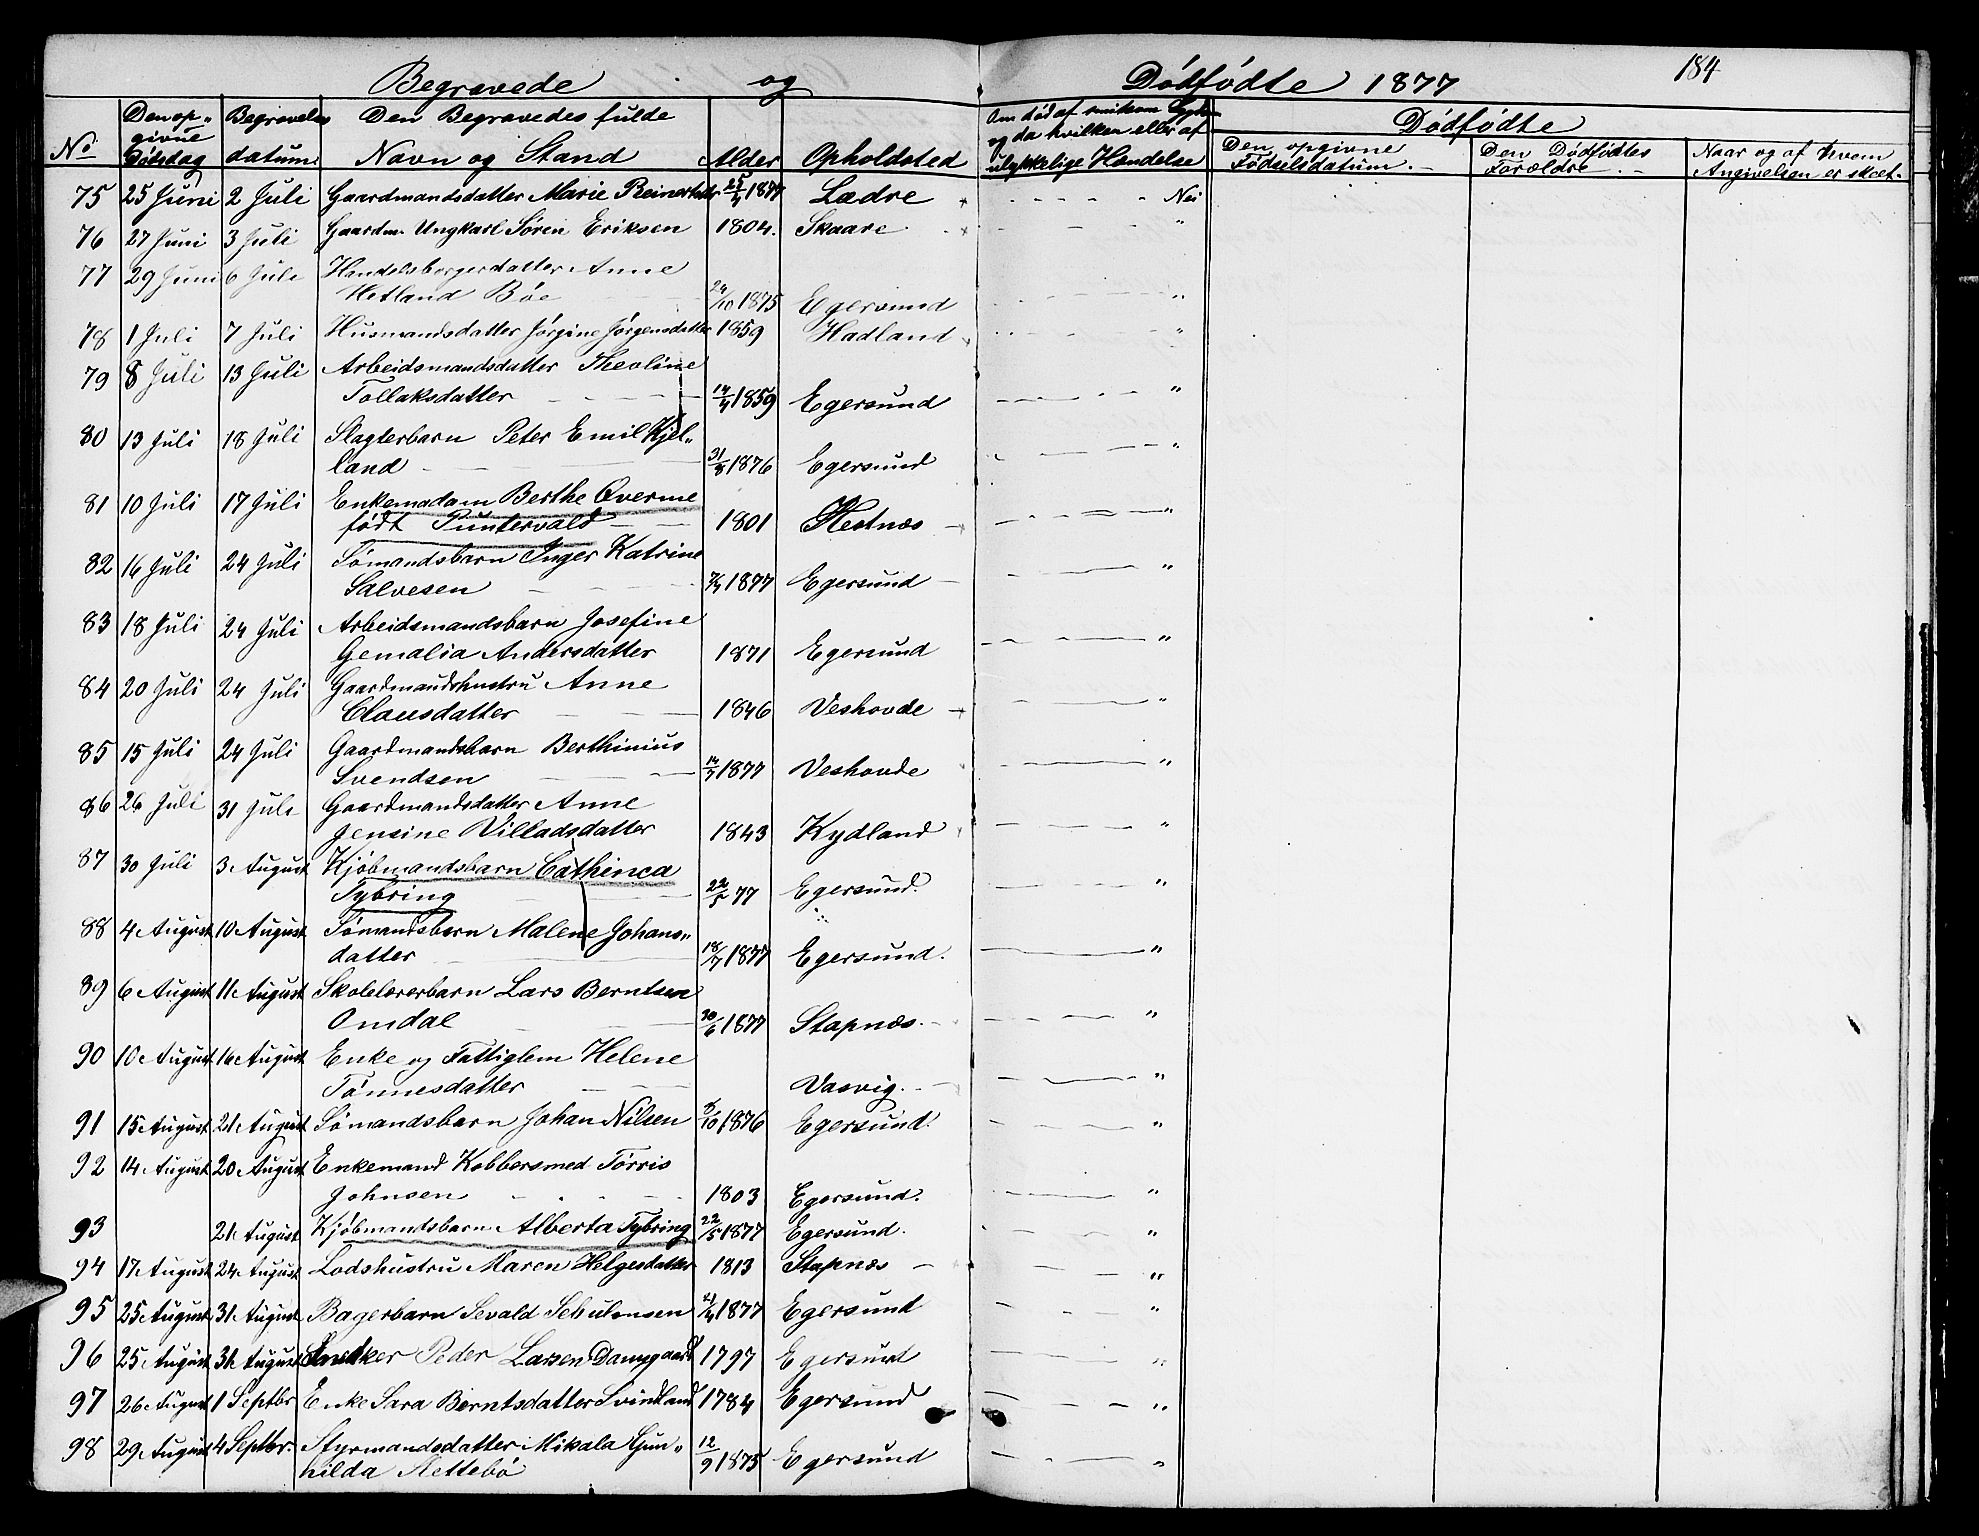 184
Begravede og Dödfödte 1877
No Den op„givne Dödsdag Begravelsesdatum Den Begravedes fulde Navn og Stand Alder Opholdsted Om död af smitsom Sygd. og da hvilken eller af ulykkelige Hændelse
Dödfödte
Den opgivne Födselsdatum. Den Dödfödtes Forældre. Naar og af hvem Angivelsen er skeet.
75 25 Juni 2 Juli Gaardmandsdatter Marie Reinertsdtr 1877 Lædre Nei
76 27 Juni 3 Juli Gaardm. Ungkarl Sören Eriksen 1804. Skaare "
77 29 Juni 6 Juli Handelsborgerdatter Anne
Hetland Böe 24/10 1875 Egersund "
78 1 Juli 7 Juli Husmandsdatter Jörgine Jörgensdatter 1859 Hadland "
79 8 Juli 13 Juli Arbeidsmandsdatter Theoline
Tollaksdatter 14/4 1859 Egersund "
80 13 Juli 18 Juli Slagterbarn Peter Emil Kjel„
land 31/8 1876 Egersund "
81 10 Juli 17 Juli Enkemadam Berthe Qverme
födt Puntervald 1801 Hestnæs "
82 16 Juli 24 Juli Sömandsbarn Inger Katrine
Salvesen 1877 Egersund "
83 18 Juli 24 Juli Arbeidsmandsbarn Josefine
Gemalia Andersdatter 1871 Egersund "
84 20 Juli 24 Juli Gaardmandshustru Anne
Clausdatter 1846 Veshovde "
85 15 Juli 24 Juli Gaardmandsbarn Berthinius
Svendsen 14/7 1877 Veshovde "
86 26 Juli 31 Juli Gaardmandsdatter Anne
Jensine Villadsdatter 1843 Kydland "
87 30 Juli 3 August Kjöbmandsbarn Cathinca
Tybring 22/5 77 Egersund. "
88 4 August 10 August Sömandsbarn Malene Johans„
datter 18/7 1877 Egersund. "
89 6 August 11 August Skolelærerbarn Lars Berntsen
Omdal 30/6 1877 Stapnæs. "
90 10 August 16 August Enke og Fattiglem Helene
Tönnesdatter Vasvig. "
91 15 August 21 August Sömandsbarn Johan Nilsen 1876 Egersund. "
92 14 August 20 August Enkemand Kobbersmed Törris
Johnsen 1803 Egersund. "
93 21 August Kjöbmandsbarn Alberta Tybring 22/5 1877 Egersund. "
94 17 August 24 August Lodshustru Maren Helgesdatter 1813 Stapnæs "
95 25 August 31 August Bagerbarn Sevald Schulensen 21/4 1877 Egersund "
96 25 August 31 August Peder Larsen Damsgaard 1797 Egersund "
97 26 August 1 Septbr Enke Sara Berntsdatter Svindland 1784 Egersund "
98 29 August 4 Septbr. Styrmandsdatter Mikala Gun„
hilda Slettebö 12/9 1875 Egersund "